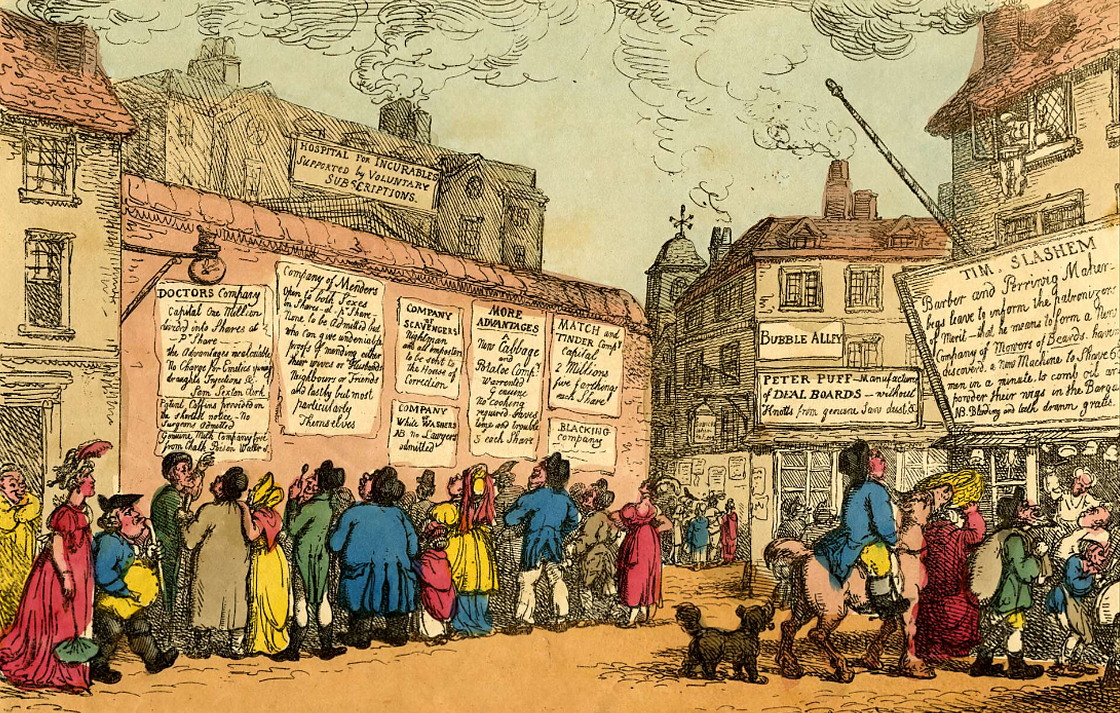 HOSPITAL FOR INCURABLES
Supported by VOLUNTARY
SUBSCRIPTIONS.
DOCTORS Company
Capital One Million
divided into Shares at
- P Share -
the Advantages incalculable
No Charge for Emetics young
draughts Injections &c.
Tom Sexton Clerk
Patent Coffins provided on
the shortest notice - No
Surgeons Admitted
Genuine Milk Company free
from Chalk Poison Water &
Company of Menders
Open to both Sexes
in Shares at P Share
None to be Admitted but
who can give undeniable
proofs of mending either
their wives or Husbands
Neighbours or Friends
and lastly but most
particularly
Themselves
COMPANY
of
SCAVENGERS
Nightman
and Imposters
to be sent to
the House of
Correction
COMPANY
of
White WASHERS
NB. No Lawyers
admitted
MORE
ADVANTAGES
New Cabbage
and
Potatoe Comp.y
Warrented
Genuine
No cooking
required saves
time and trouble
5 each Share
MATCH and
TINDER Comp.y
Capital
2 Millions
five farthings
each Share
BLACKING
Company
BUBBLE ALLEY
PETER PUFF - Manufacturer
of DEAL BOARDS - without
Knotts from genuine Saw dust &
TIM. SLASHEM
Barber and Perriwig Maker.
begs leave to inform the patronizers
of Merit - that he means to form a New
Company of Mowers of Beards. having
discovered a new Machine to Shave
men in a minute. to comb oil and
powder their wigs in the Bargain
NB. Bleeding and teeth drawn gratis